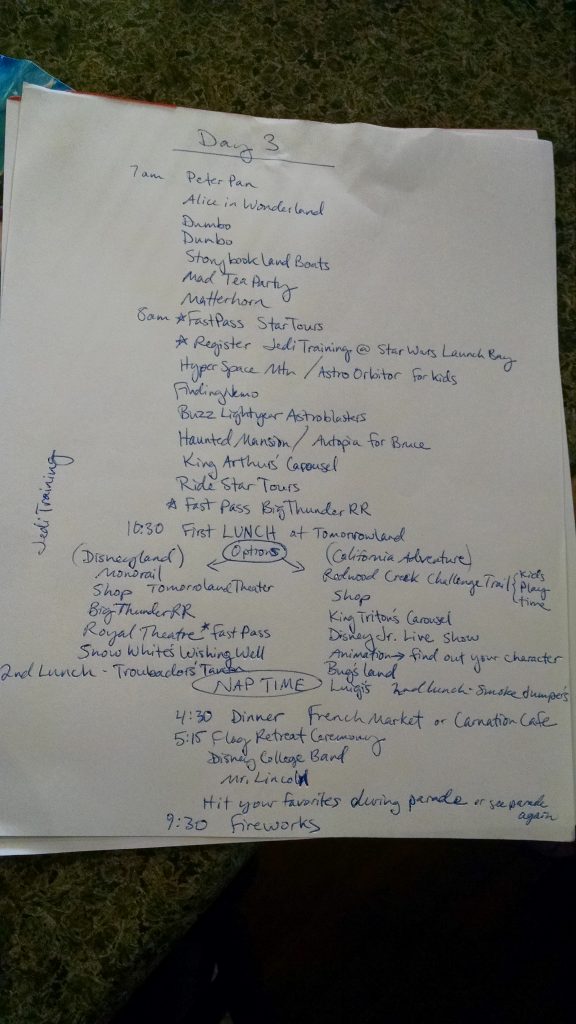 Day 3
7am Peter Pan
Alice in Wonderland
Dumbo
Dumbo
Storybook Land Boats
Mad Tea Party
Matterhorn
8am ☆FastPass Star Tours
☆ Register Jedi Training @ Star Wars Launch Bay
HyperSpace Mtn / Astro Orbitor for kids
Finding Nemo
Buzz Lightyear Astroblasters
Haunted Mansion / Autopia for Bruce
King Arthur's Carousel
Ride Star Tours
☆ Fast Pass Big Thunder RR
Jedi Training
10:30 First LUNCH at Tomorrowland
Options
(Disneyland)
Monorail
Shop Tomorroland Theater
Big Thunder RR
Royal Theatre *FastPass
Snow White's Wishing Well
2nd Lunch - Troubadors' Tavern
(California Adventure)
Redwood Creek Challenge Trail { Kids Play time
Shop
King Triton's Carousel
Disney Jr. Live Show
Animation → find out your character
Bug's land
Luigi's 2nd lunch - Smoke Jumper's
NAP TIME
4:30 Dinner French Market or Carnation Cafe
5:15 Flag Retreat Ceremony
Disney College Band
Mr. Lincoln
Hit your favorites during parade or see parade again
9:30 fireworks